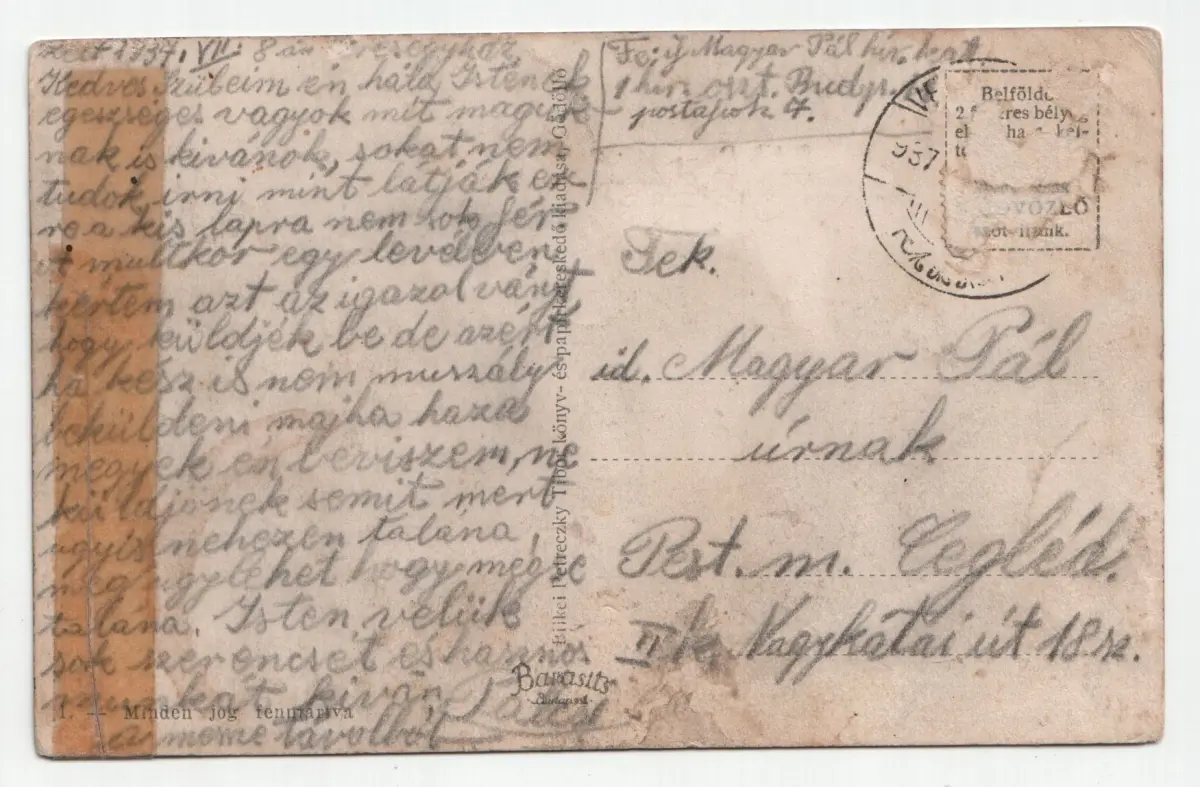 1937. VII. 8 án
Kedves Szüleim én hála Istennek
egeszséges vagyok mit maguk-
nak is kivánok, sokat nem
tudok irni mint latják er
re a kis lapra nem sok fér
a multkor egy levelben
kértem azt az igazolványt
hogy küldjék be de azért
ha kész is nem muszály
beküldeni majha haza
megyek én beviszem, ne
küldjenek semit mert
ugyis nehezen talána,
meg ugylehet hogy még se
talána. Isten velük
sok szerencset és
kiván
távolból
Fe: ij Magyar Pál hir.
1 hir. oszt. Budp.
postafiok 7.
Belföldö
2 f eres bély
el ha
ÜDVÖZLŐ
szót irunk.
937
Tek.
id. Magyar Pál
úrnak
Pest. m. Cegléd.
III k. Nagykátai út 18 sz.
Petreczky Tibor könyv- és papirkereskedő kiadása, Gödöllő
Barasits
Budapest
1. — Minden jog fenntartva